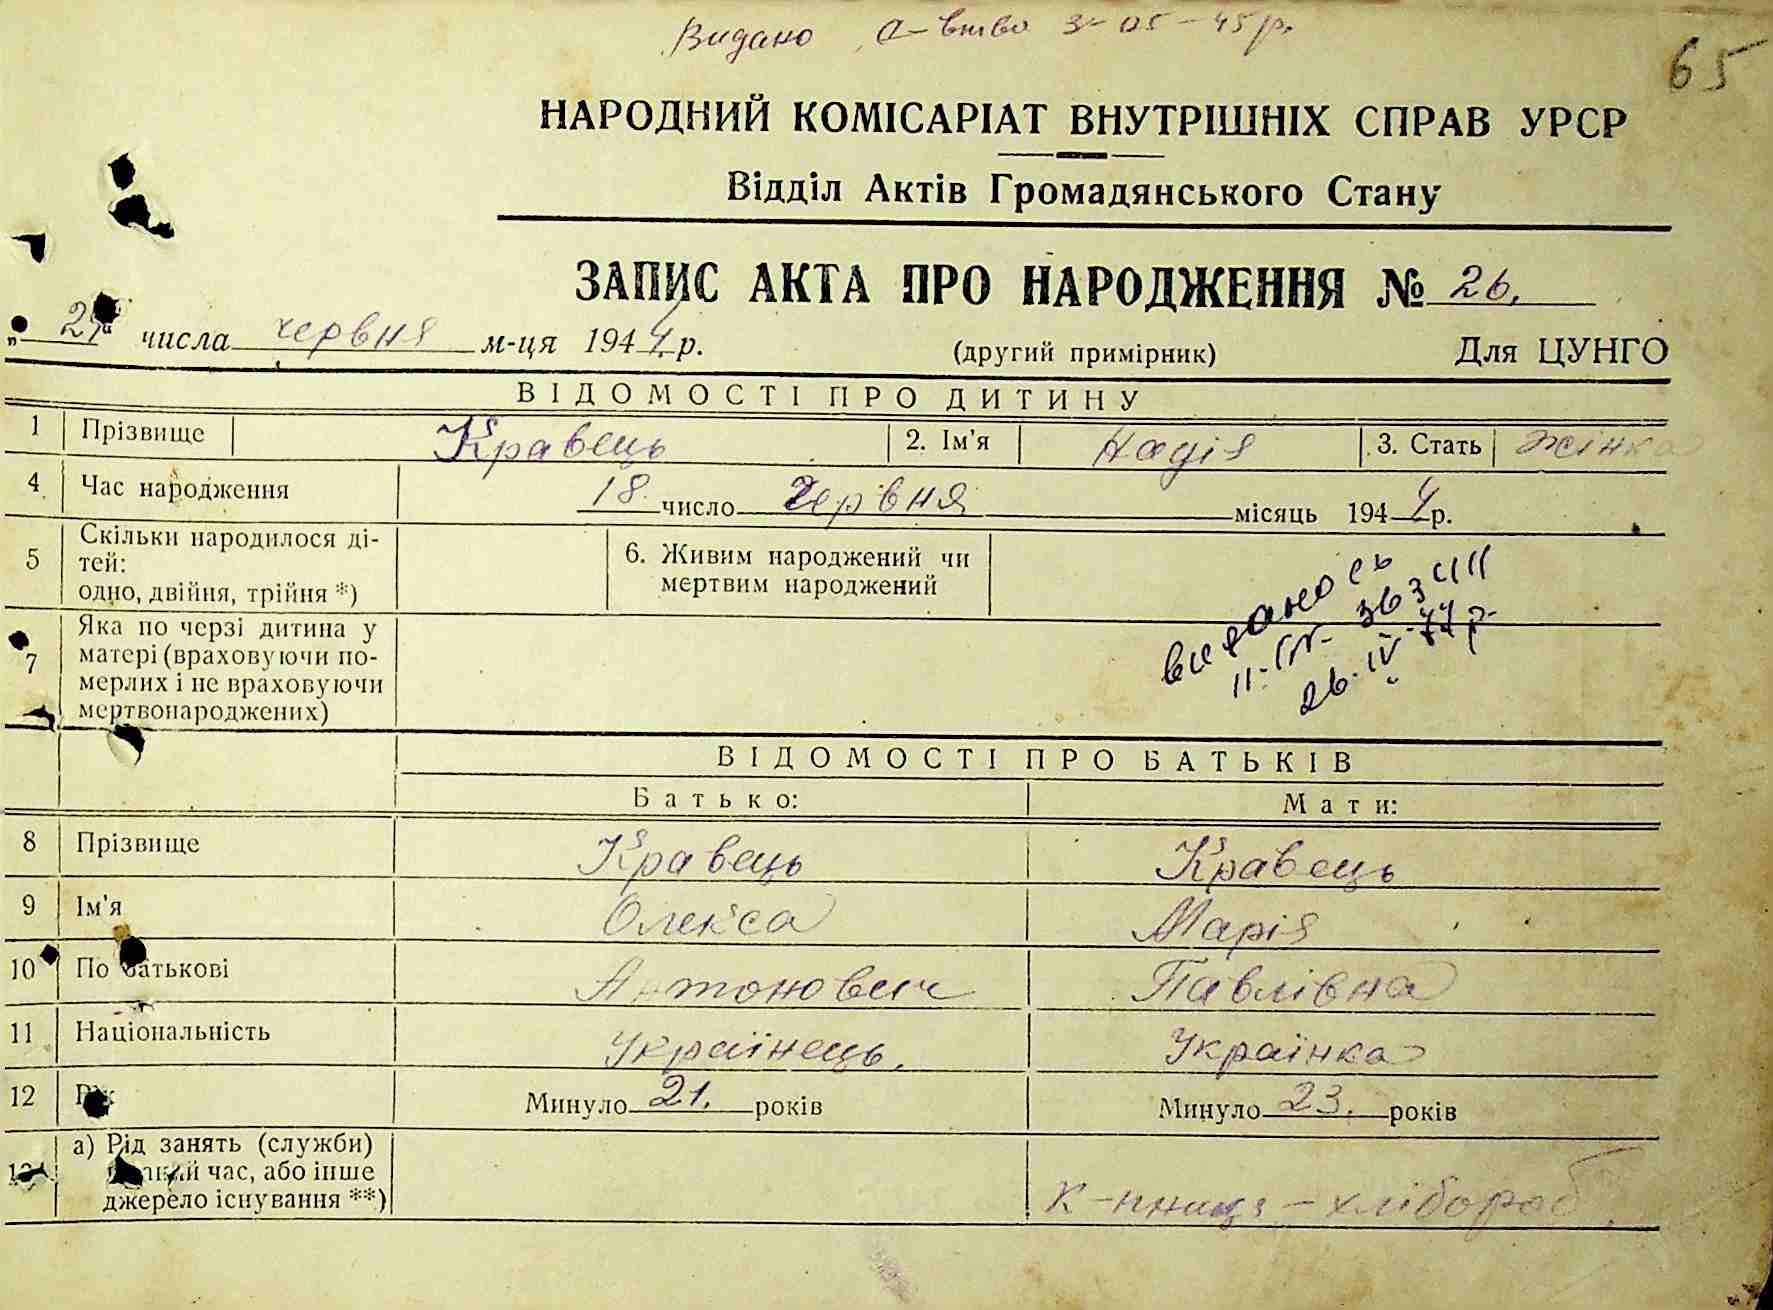 Видано с-втво 3-05-45р.
65
НАРОДНИЙ КОМІСАРІАТ ВНУТРІШНІХ СПРАВ УРСР
Відділ Актів Громадянського Стану
ЗАПИС АКТА ПРО НАРОДЖЕННЯ № 26.
„ числа червня м-ця 1944 р. (другий примірник) Для ЦУНГО
ВІДОМОСТІ ПРО ДИТИНУ
1 Прізвище Кравець 2. Ім'я Надія 3. Стать жінка
4 Час народження 18 число Червня місяць 1944 р.
5 Скільки народилося ді-
тей:
одно, двійня, трійня *)
6. Живим народжений чи
мертвим народжений
видано
26·IV-77р.
7 Яка по черзі дитина у
матері (враховуючи по-
мерлих і не враховуючи
мертвонароджених)
ВІДОМОСТІ ПРО БАТЬКІВ
Батько: Мати:
8 Прізвище Кравець Кравець
9 Ім'я Олекса Марія
10 По батькові Антонович Павлівна
11 Національність Українець. Українка
12 Минуло 21. років Минуло 23. років
а) Рід занять (служби)
час, або інше
джерело існування **)
к-нниця - хлібороб